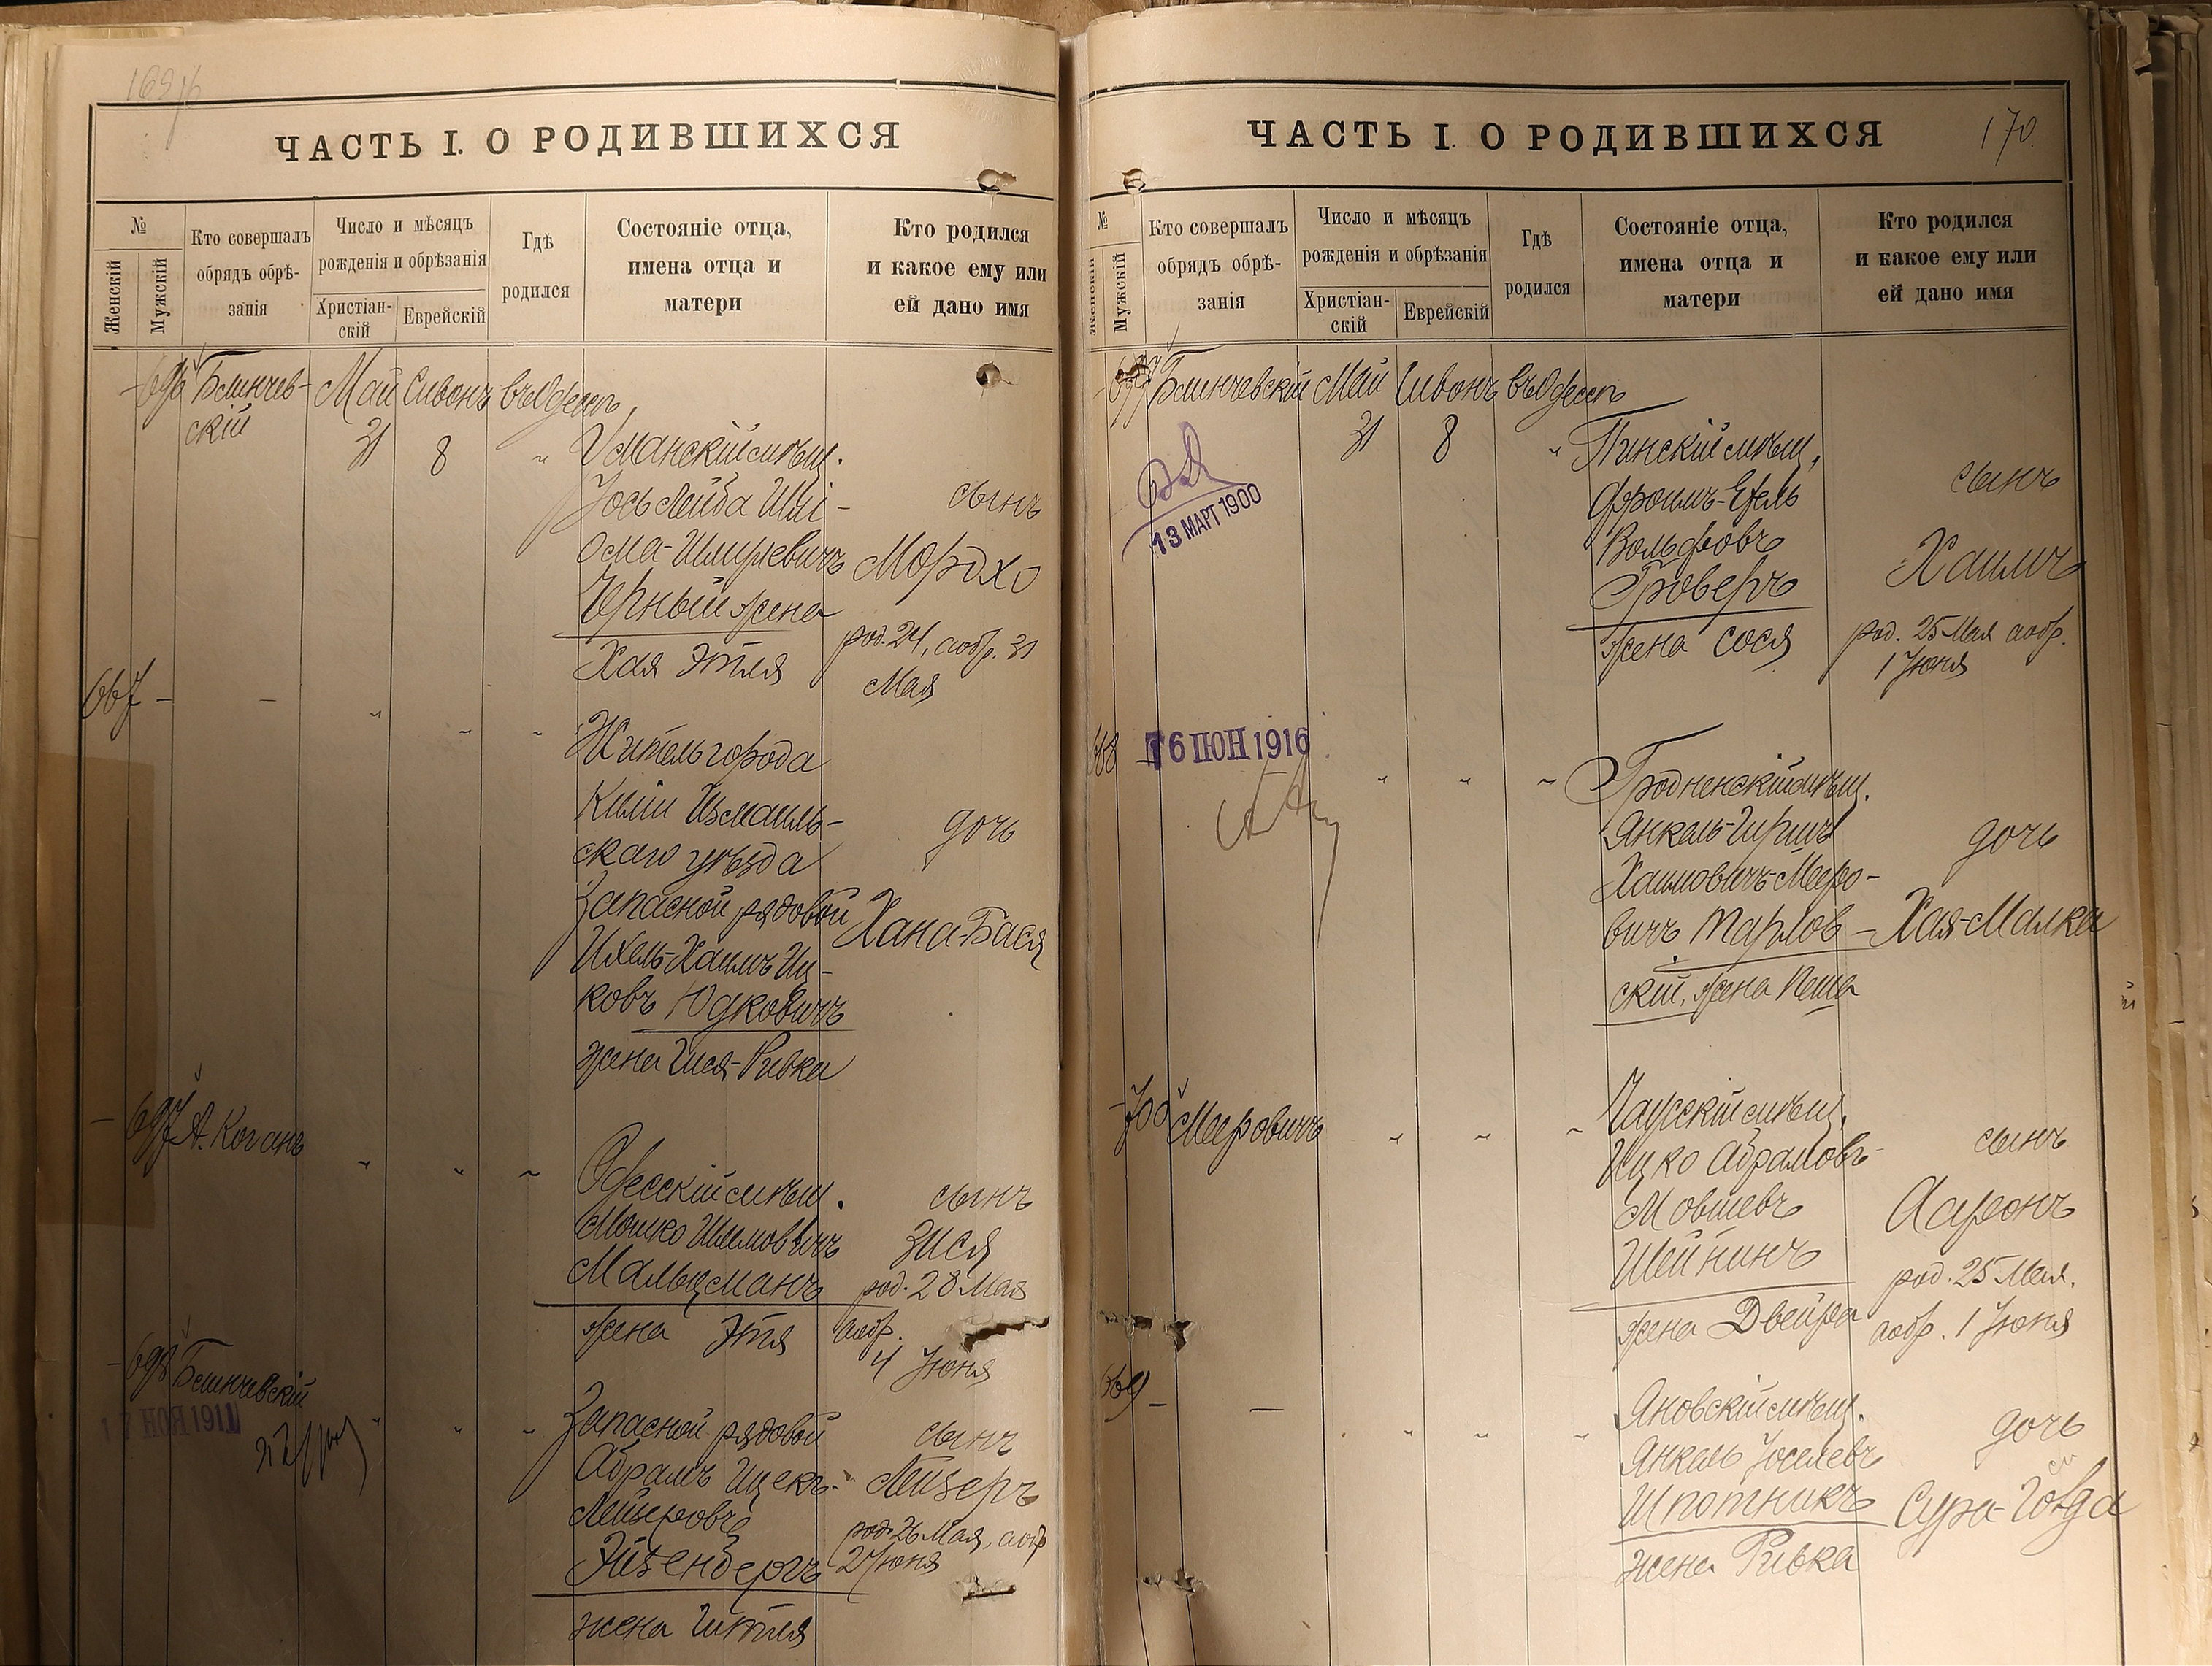 ЧАСТЬ I. О РОДИВШИХСЯ
№
Женскій
Мужскій
Кто совершалъ
обрядъ обрѣ-
занія
Число и мѣсяцъ
рожденія и обрѣзанія
Христіан-
скій
Еврейскій
Гдѣ
родился
Состояніе отца,
имена отца и
матери
Кто родился
и какое ему или
ей дано имя
696
Блинчев-
скій
Май
31
Сивонъ
8
въ Одессѣ
Уманскій мѣщ.
Іось Лейба Шлі-
ома-Шмулевичъ
Черный жена
Хая Этля
сынъ
Мордхо
род. 24, а обр. 31
Мая
667
Житель города
Киліи Измаиль-
скаго уѣзда
Запасной рядовой
Ихель-Хаимъ Иц-
ковъ Юдковичъ
жена Гися-Ривка
дочь
Хана-Бася
697
А. Коганъ
Одесскій мѣщ.
Мошко Шлемовичъ
Мальцманъ
жена Этя
сынъ
Зися
род. 28 Мая
а обр.
4 Іюня
698
Блинчевскій
17 НОЯ 1911
Запасной рядовой
Абрамъ Ицекъ-
Лейзеровъ
Эйзенбергъ
жена Гитля
сынъ
Лейзеръ
род. 26 Мая, а обр
2 Іюня
ЧАСТЬ I. О РОДИВШИХСЯ
170.
№
Женскій
Мужскій
Кто совершалъ
обрядъ обрѣ-
занія
Число и мѣсяцъ
рожденія и обрѣзанія
Христіан-
скій
Еврейскій
Гдѣ
родился
Состояніе отца,
имена отца и
матери
Кто родился
и какое ему или
ей дано имя
699
Блинчевскій
13 МАРТ 1900
Май
31
Сивонъ
8
въ Одессѣ
Пинскій мѣщ.
Фроимъ-Фтель
Вольфовъ
Гроверъ
жена Сося
сынъ
Хаимъ
род. 25 Мая а обр.
1 Іюня
668
16 ІЮН 1916
Гродненскій мѣщ.
Янкель-Гиршъ
Хаимовичъ-Меро-
вичъ Тарлов-
скій, жена Пеша
дочь
Хая-Малка
700
Меровичъ
Чаусскій мѣщ.
Ицко Абрамовъ-
Мовшевъ
Шейнинъ
жена Двейра
сынъ
Ааронъ
род. 25 Мая.
а обр. 1 Іюня
669
Яновскій мѣщ.
Янкель Іоселевъ
Шпотникъ
жена Ривка
дочь
Сура-Говда